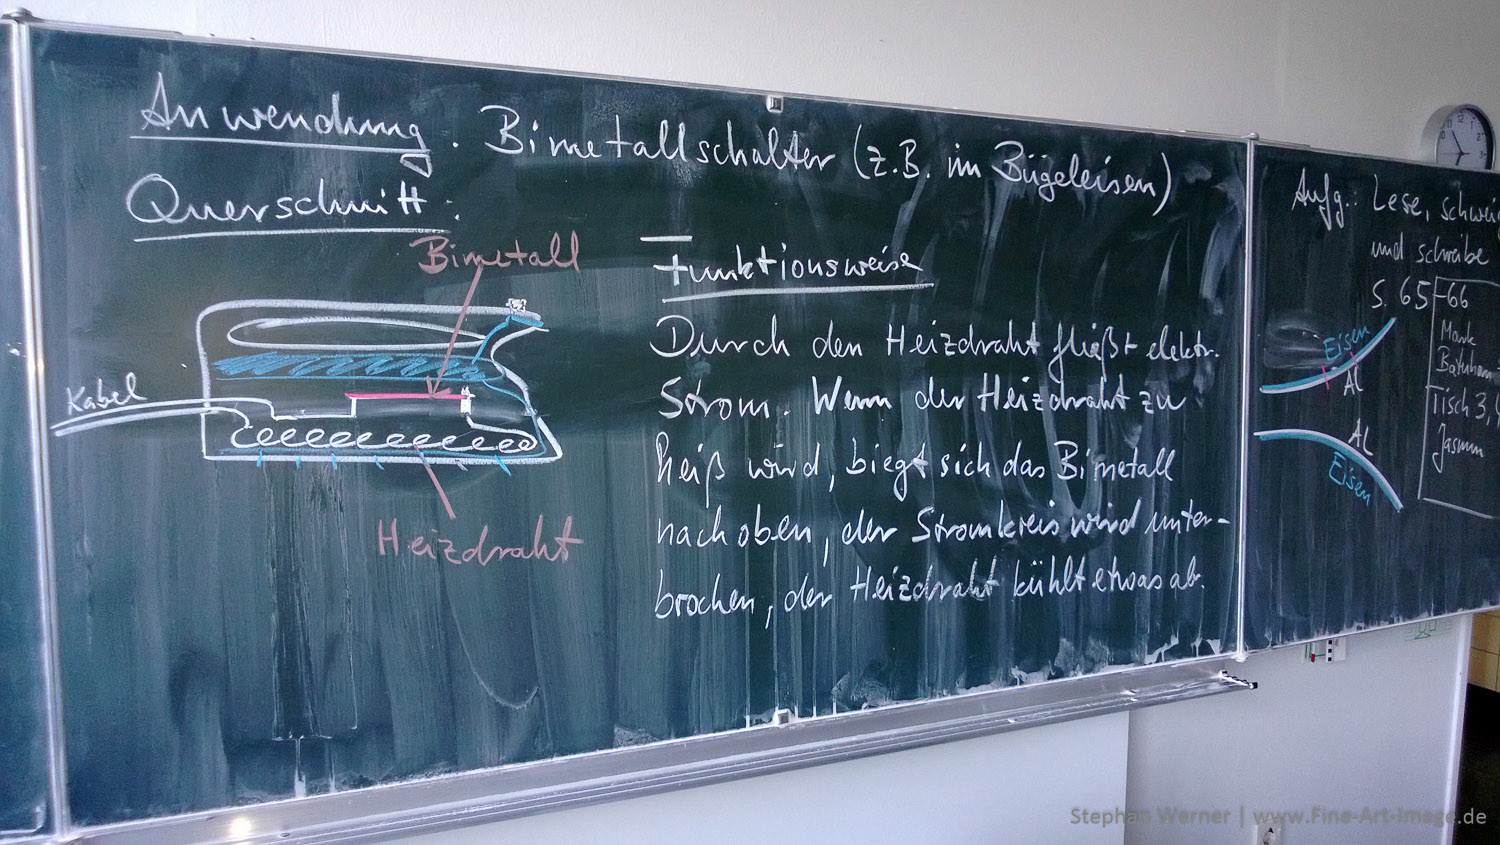 Anwendung: Bimetallschalter (z.B. im Bügeleisen)
Querschnitt:
Bimetall
Kabel
Heizdraht
Funktionsweise
Durch den Heizdraht fließt elektr.
Strom. Wenn der Heizdraht zu
heiß wird, biegt sich das Bimetall
nach oben, der Stromkreis wird unter-
brochen, der Heizdraht kühlt etwas ab.
Aufg.: Lese, schwei
und schreibe
S. 65-66
Eisen
Al
Al
Eisen
Mark
Tisch 3,4
Jasmin
Stephan Werner | www.Fine-Art-Image.de